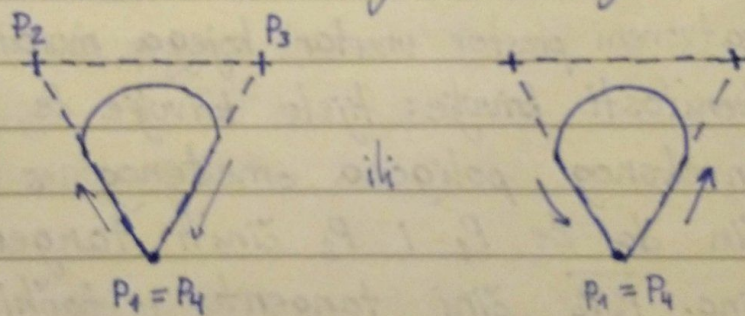 P2 P3
ili
P1 = P4 P1 = P4